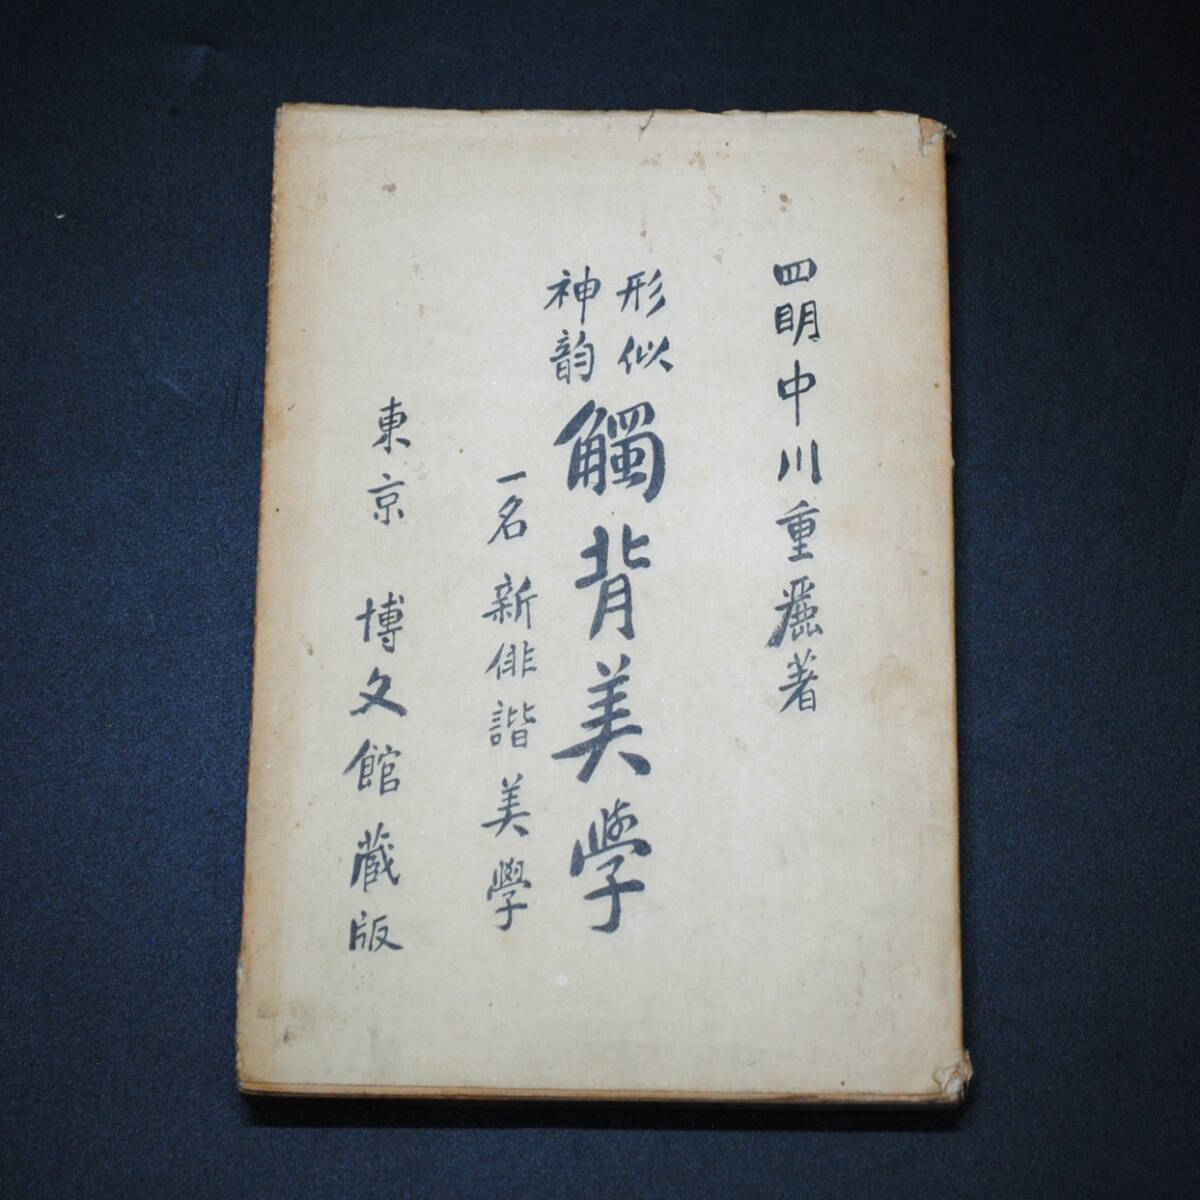 四明中川重麗著
形似
神韵
觸背美學
一名新俳諧美學
東京 博文館蔵版